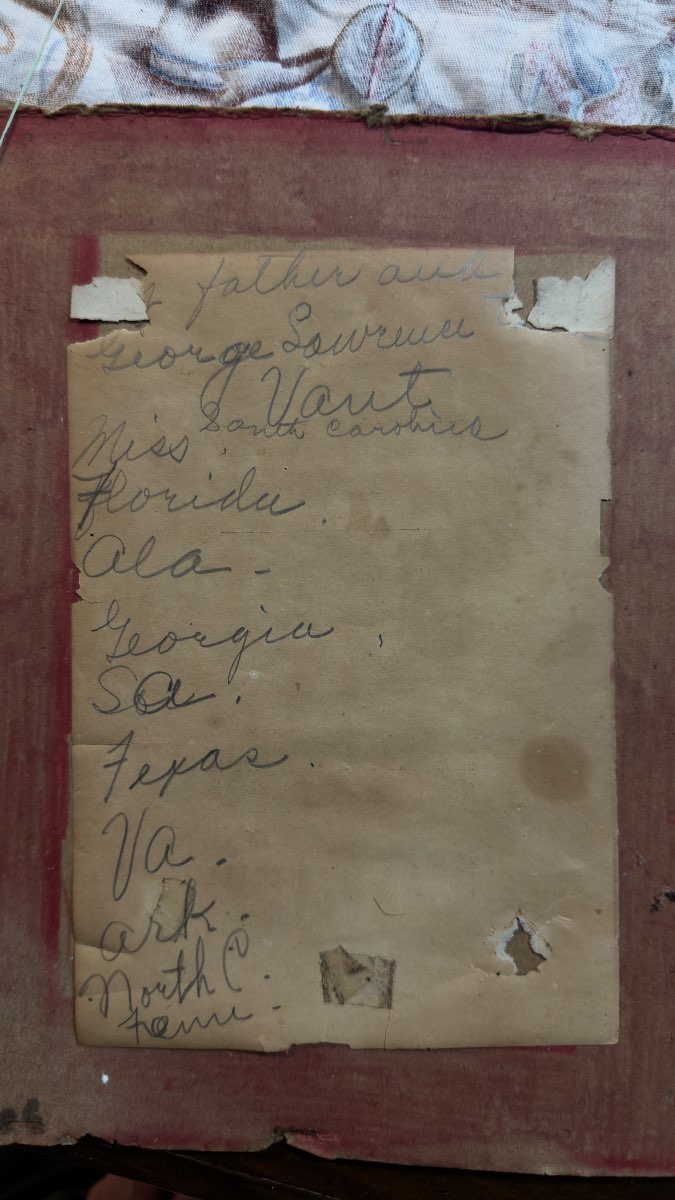 father and
George Lawrence
Vant
South Carolina
Miss.
Florida.
Ala -
Georgia,
Texas.
Va.
Ark.
North C.
Tenn -